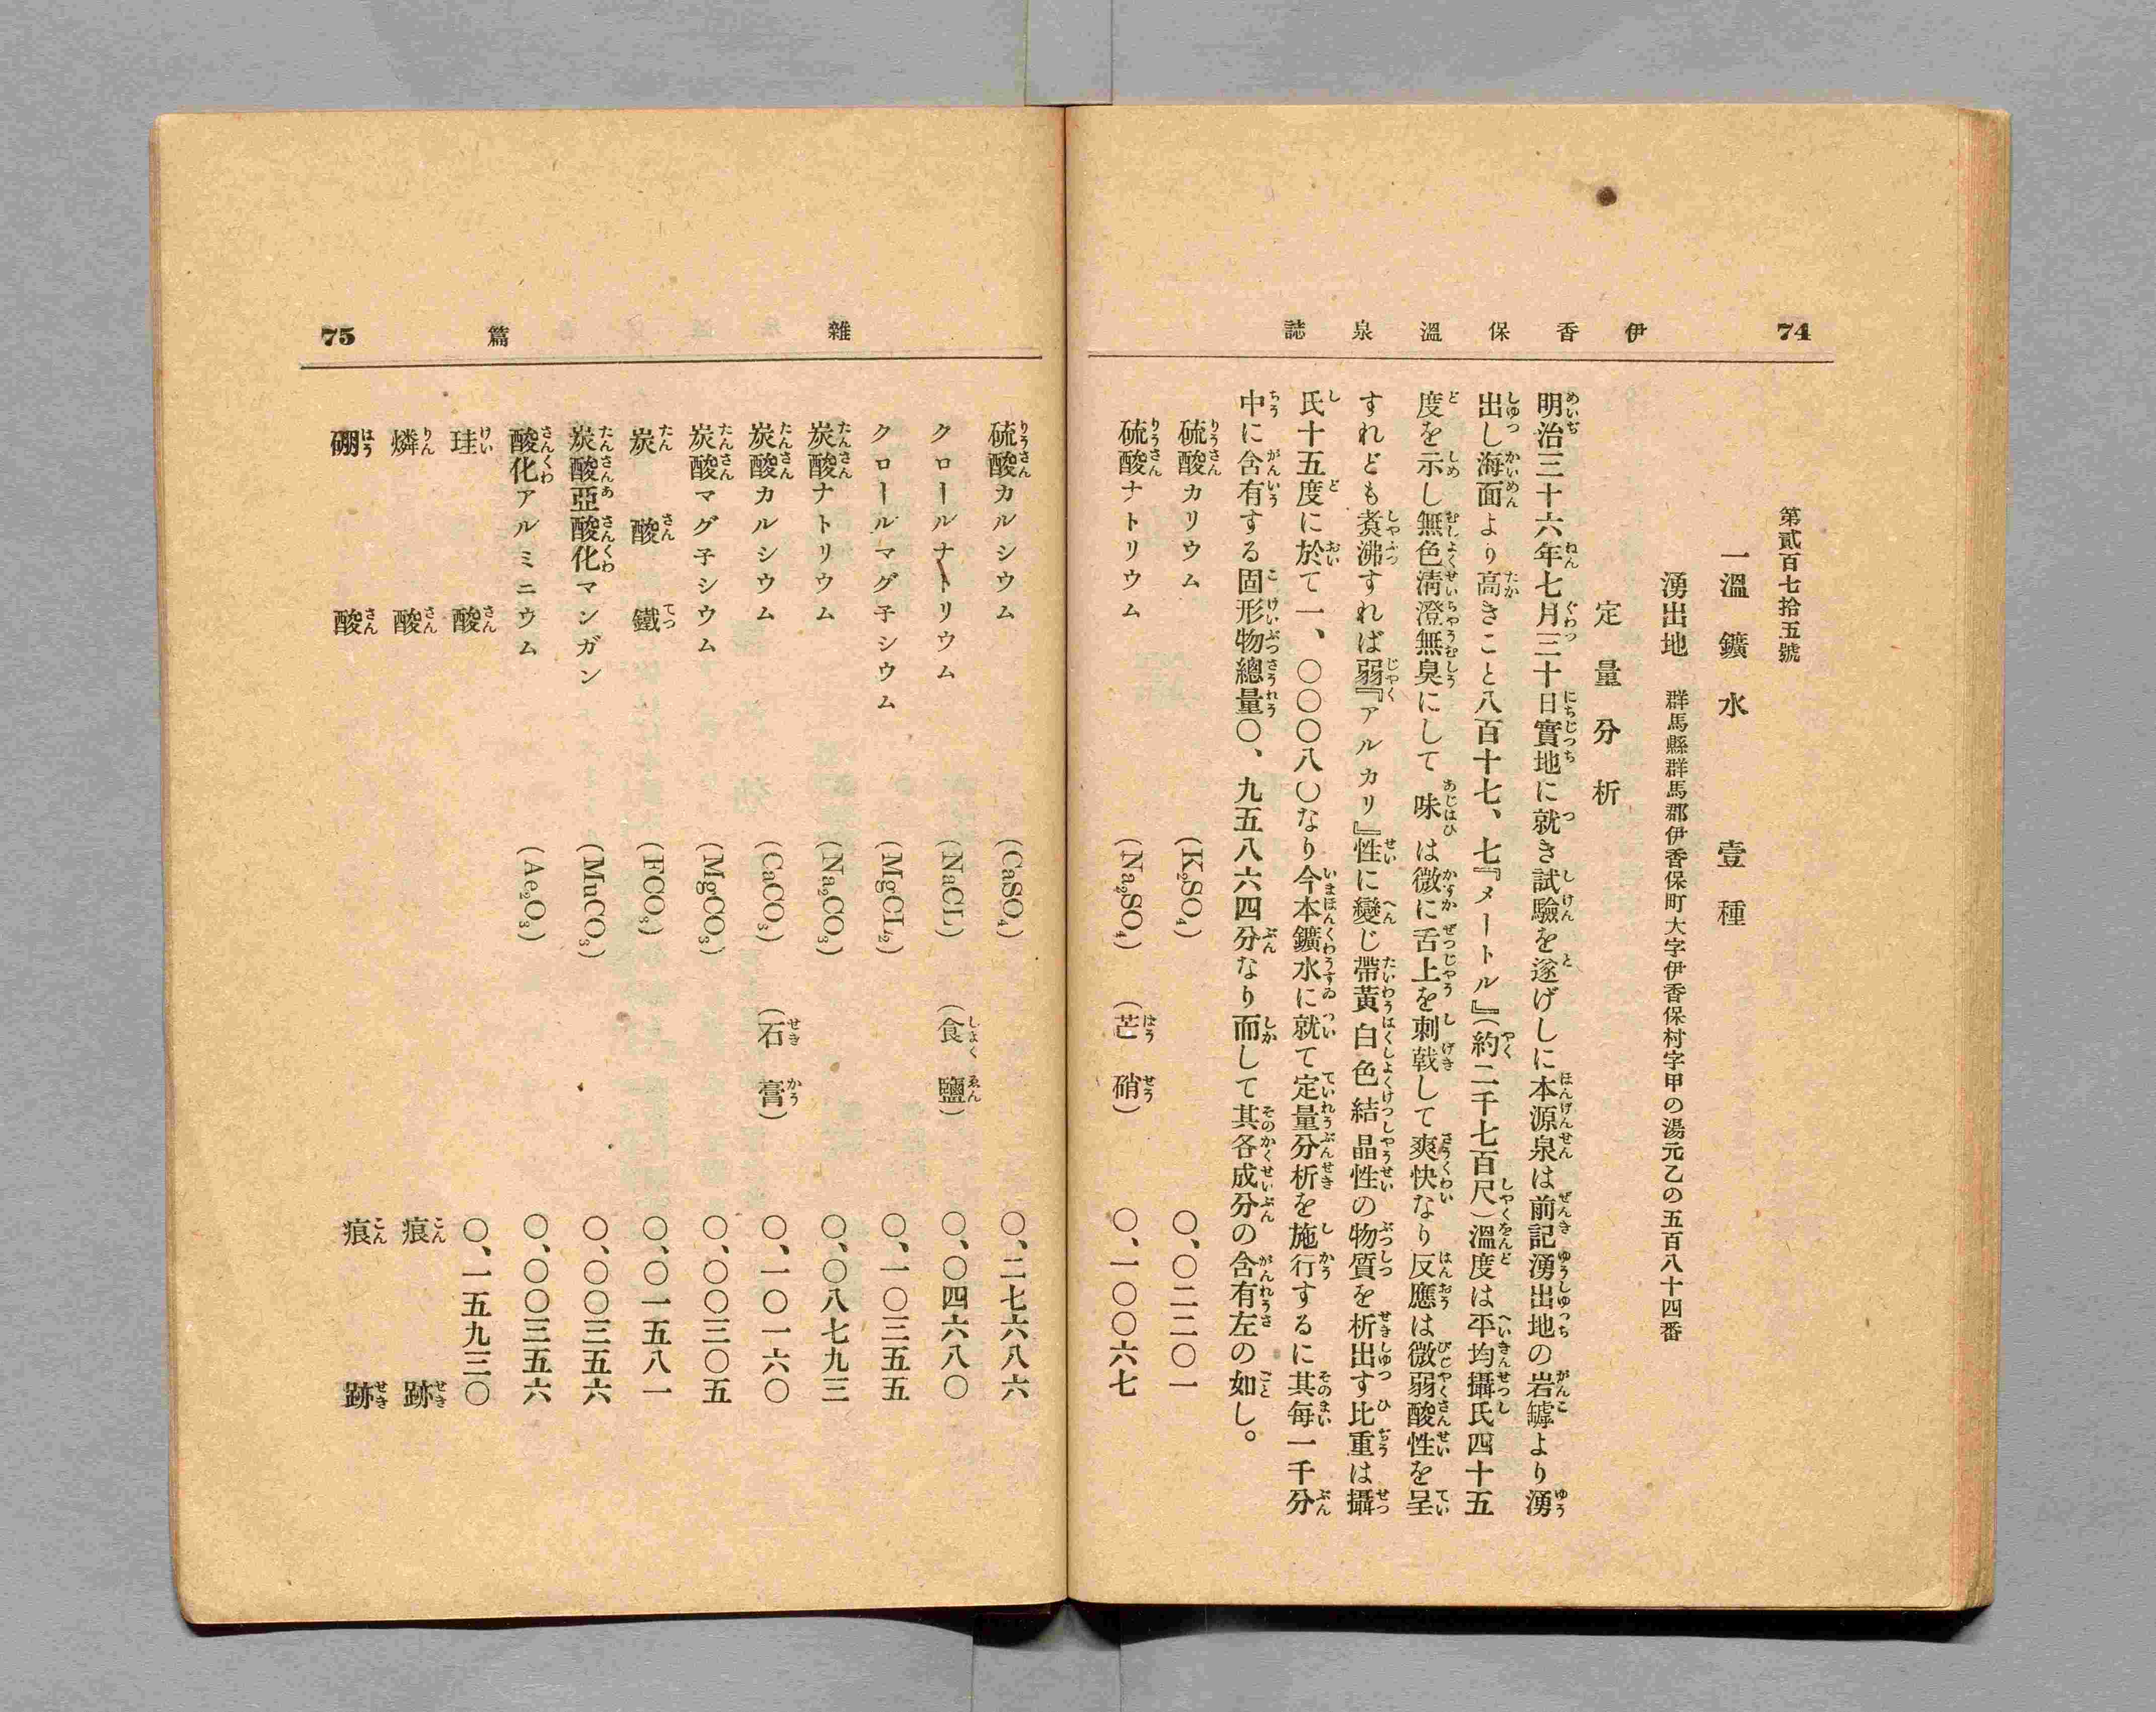 74
伊香保溫泉誌
第貳百七拾五號
一溫鑛水 壹種
湧出地 群馬縣群馬郡伊香保町大字伊香保村字甲の湯元乙の五百八十四番
定量分析
明治三十六年七月三十日實地に就き試驗を遂げしに本源泉は前記湧出地の岩罅より湧
出し海面より高きこと八百十七、七『メートル』(約二千七百尺)溫度は平均攝氏四十五
度を示し無色淸澄無臭にして味は微に舌上を刺戟して爽快なり反應は微弱酸性を呈
すれども煑沸すれば弱『アルカリ』性に變じ帶黃白色結晶性の物質を析出す比重は攝
氏十五度に於て一、〇〇〇八〇なり今本鑛水に就て定量分析を施行するに其每一千分
中に含有する固形物總量〇、九五八六四分なり而して其各成分の含有左の如し。
硫酸カリウム (K₂SO₄) 〇、〇二二〇一
硫酸ナトリウム (Na₂SO₄) (芒硝) 〇、一〇〇六七
雜篇
75
硫酸カルシウム (CaSO₄) 〇、二七六八六
クロールナトリウム (NaCL) (食鹽) 〇、〇四六八〇
クロールマグ子シウム (MgCL₂) 〇、一〇三五五
炭酸ナトリウム (Na₂CO₃) 〇、〇八七九三
炭酸カルシウム (CaCO₃) (石膏) 〇、一〇一六〇
炭酸マグ子シウム (MgCO₃) 〇、〇〇三〇五
炭酸鐵 (FCO₃) 〇、〇一五八一
炭酸亞酸化マンガン (MuCO₃) 〇、〇〇三五六
酸化アルミニウム (Ae₂O₃) 〇、〇〇三五六
珪酸 〇、一五九三〇
燐酸 痕跡
硼酸 痕跡